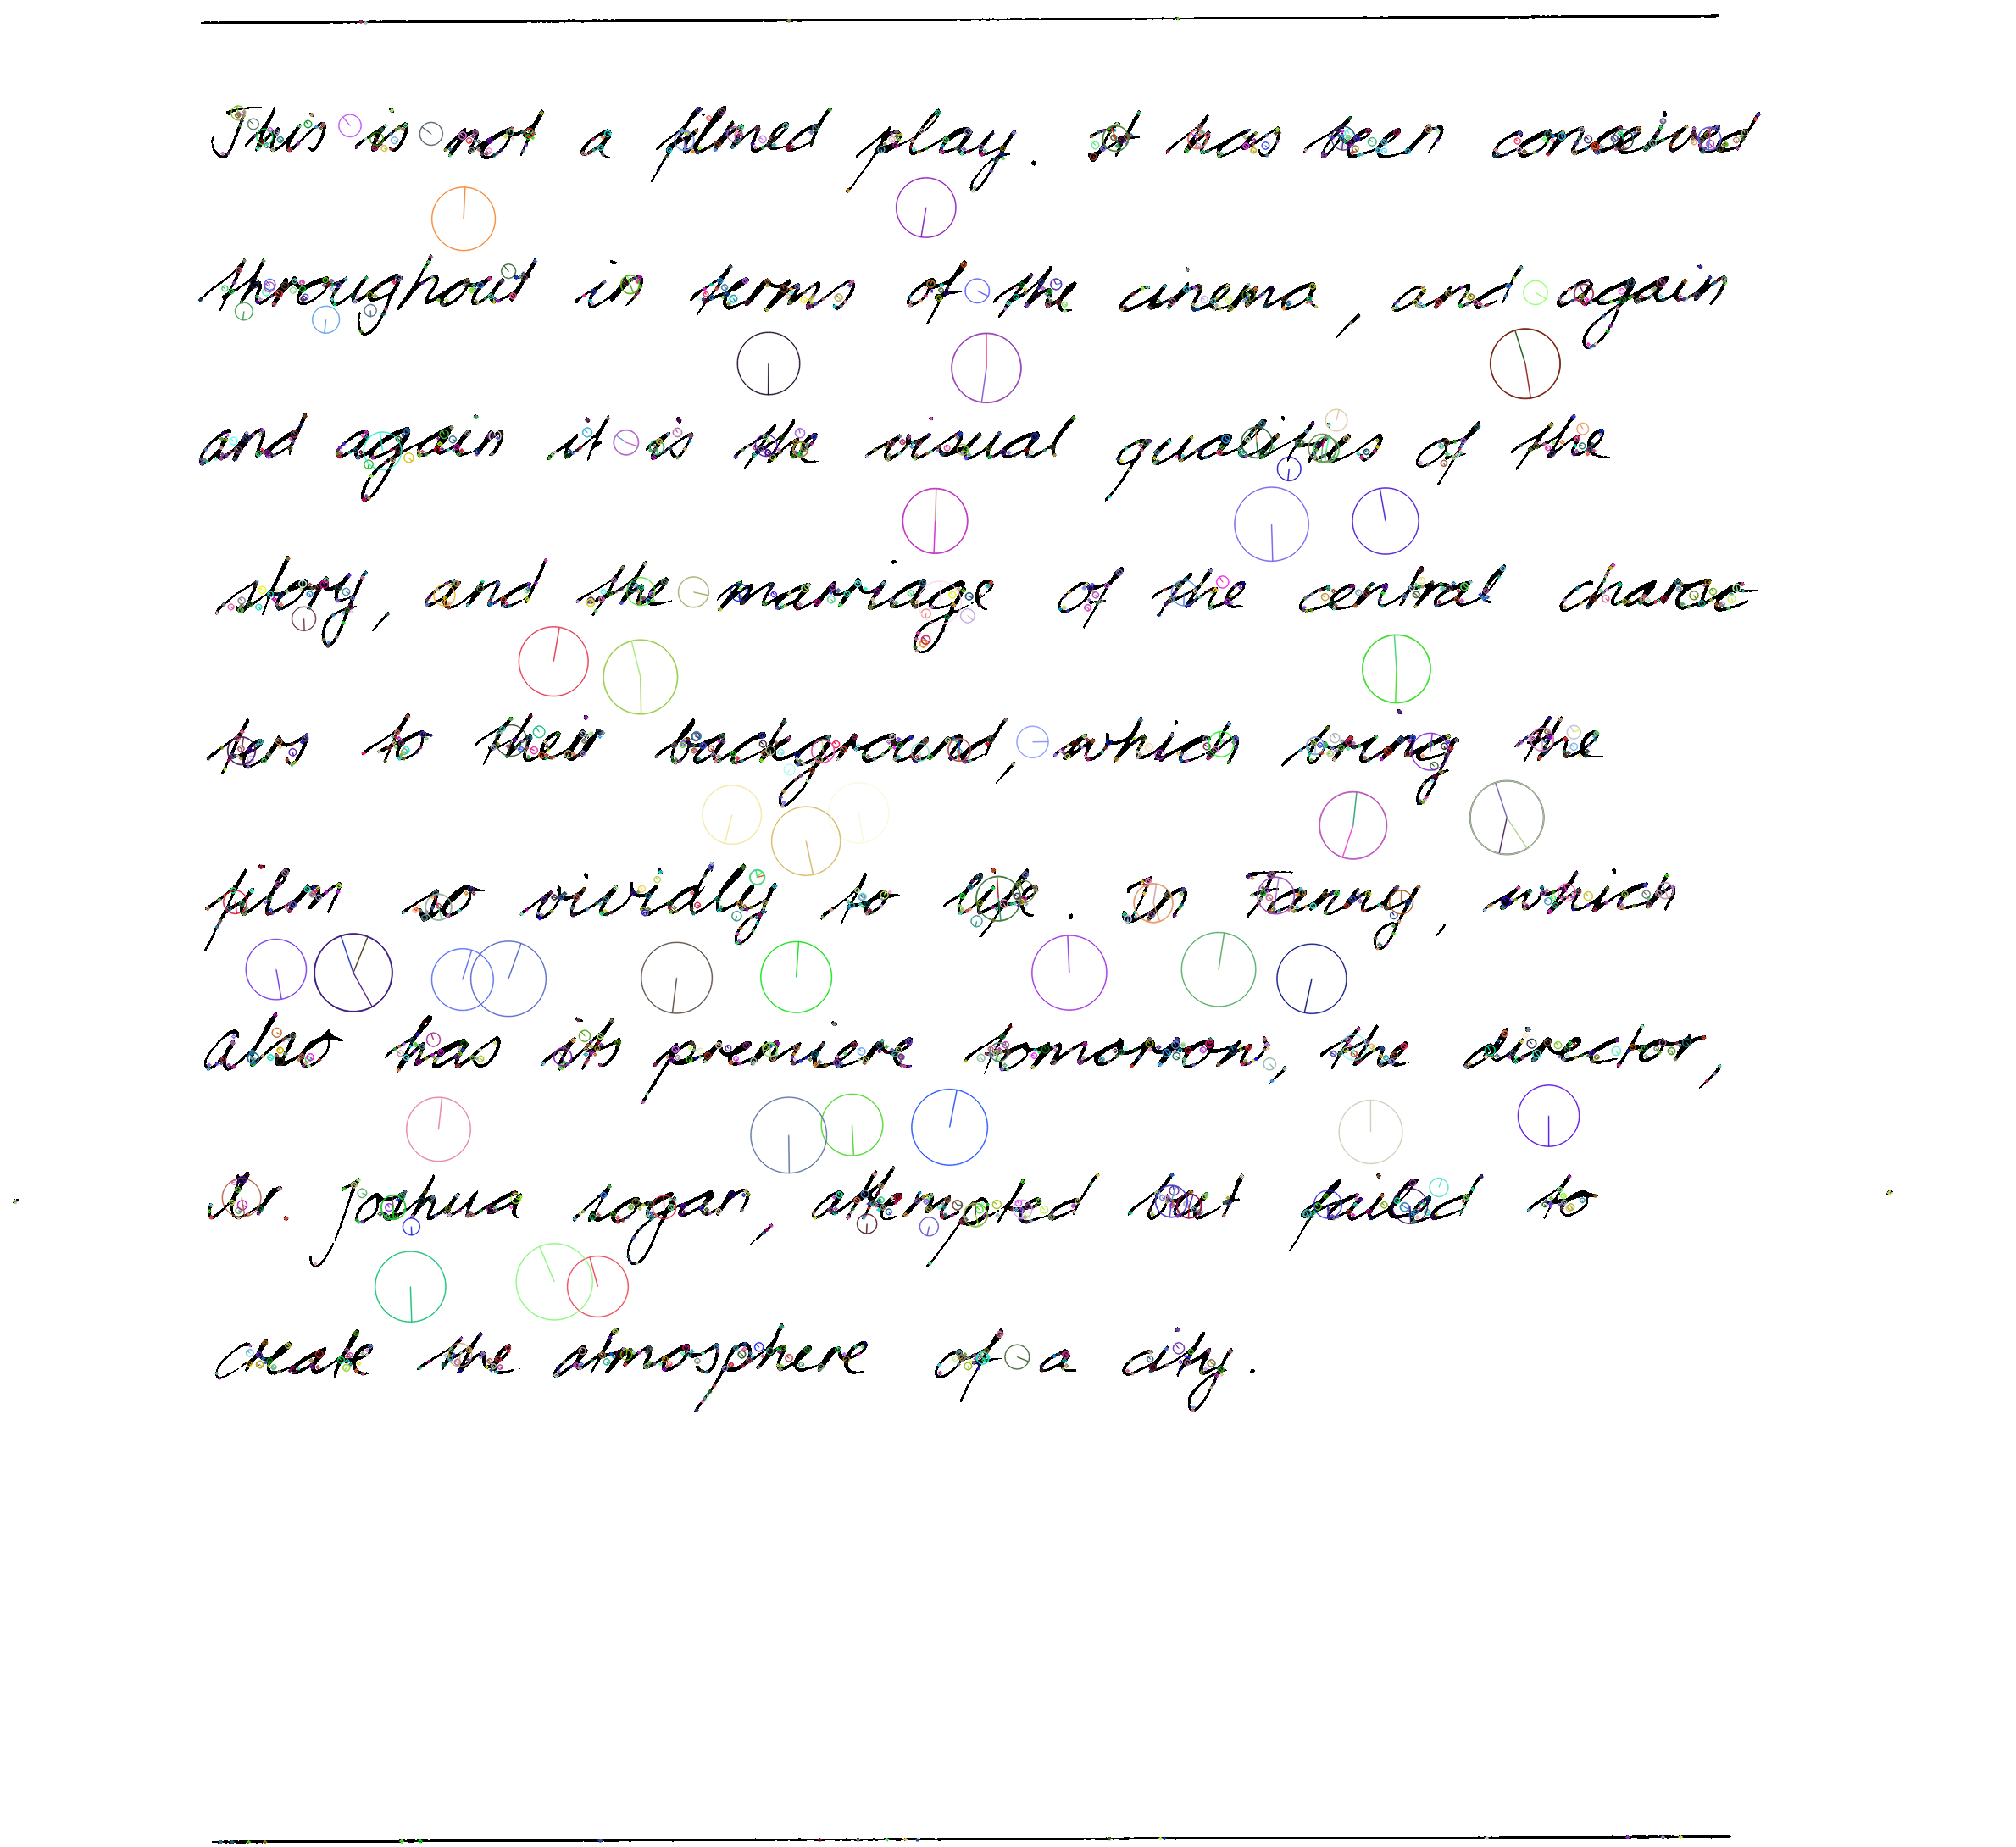 This is not a filmed play. It has been conceived
throughout in terms of the cinema, and again
and again it is the visual qualities of the
story, and the marriage of the central charac
ters to their background, which bring the
film so vividly to life. In Fanny, which
also has its premiere tomorrow, the director,
Mr. Joshua sogan, attempted but failed to
create the atmosphere of a city.